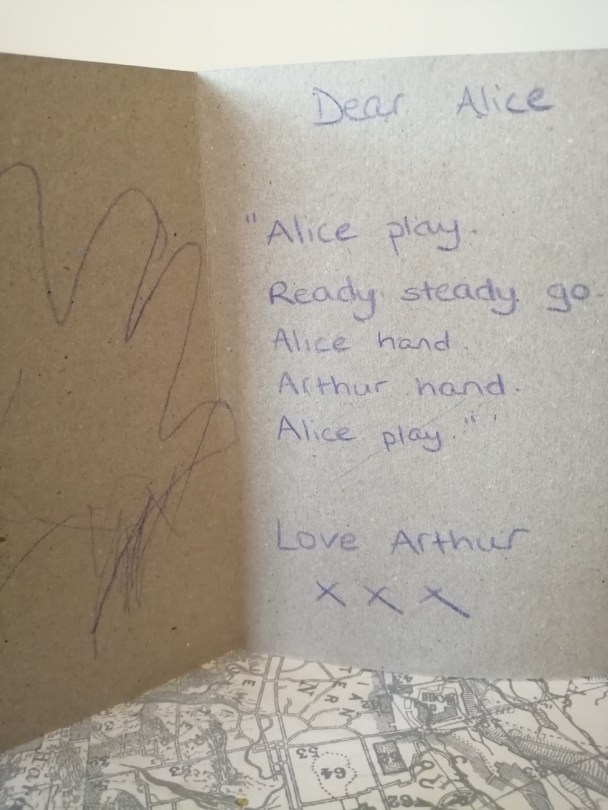 Dear Alice
"Alice play.
Ready steady go.
Alice hand.
Arthur hand.
Alice play."
Love Arthur
x x x
64
53
52